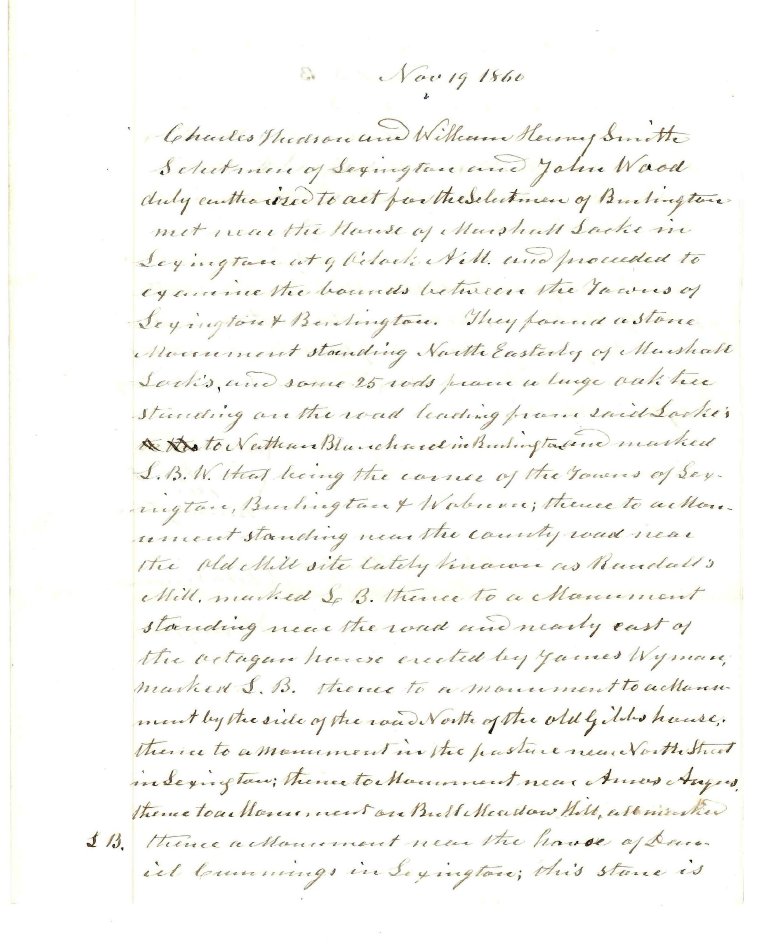 Nov 19 1860
Charles Hudson and William Henry Smith
Selectmen of Lexington and John Wood
duly authorised to act for the Selectmen of Burlington
met near the House of Marshall Locke in
Lexington at 9 O'clock A.M. and proceeded to
examine the bounds between the Towns of
Lexington & Burlington. They found a stone
Monument standing North Easterly of Marshall
Lock's, and some 25 rods from a large oak tree
standing on the road leading from said Locke's
to Nathan Blanchard in Burlington and marked
L. B. W. that being the corner of the Towns of Lex-
ington, Burlington & Woburn; thence to a Mon-
ument standing near the county road near
the Old Mill site lately known as Randall's
Mill. marked L B. thence to a Monument
standing near the road and nearly east of
the octagan house erected by James Wyman;
marked L. B. thence to a monument to a Monu-
ment by the side of the road North of the old Gibbs house;
thence to a monument in the pasture near North Street
in Lexington; thence to Monument near Amos
thence to a Monument on Bull Meadow Hill, all marked
L B. thence a Monument near the house of Dan-
iel Cummings in Lexington; this stone is